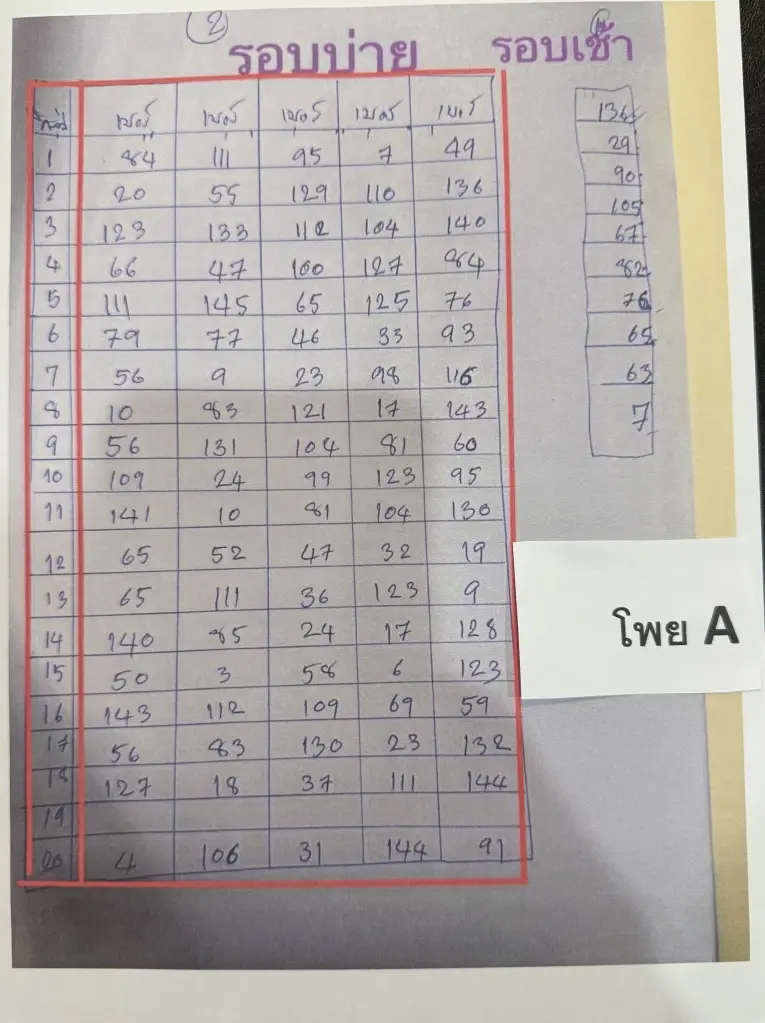 2
รอบบ่าย รอบเช้า
กลุ่ม เบอร์ เบอร์ เบอร์ เบอร์ เบอร์
1 84 111 95 7 49
2 20 55 129 110 136
3 123 133 112 104 140
4 66 47 100 127 84
5 111 145 65 125 76
6 79 77 46 33 93
7 56 9 23 98 116
8 10 83 121 17 143
9 56 131 104 81 60
10 109 24 99 123 95
11 141 10 81 104 130
12 65 52 47 32 19
13 65 111 36 123 9
14 140 85 24 17 128
15 50 3 58 6 123
16 143 112 109 69 59
17 56 83 130 23 132
18 127 18 37 111 144
19
20 4 106 31 144 91
136
29
90
105
67
82
76
65
63
7
โพย A